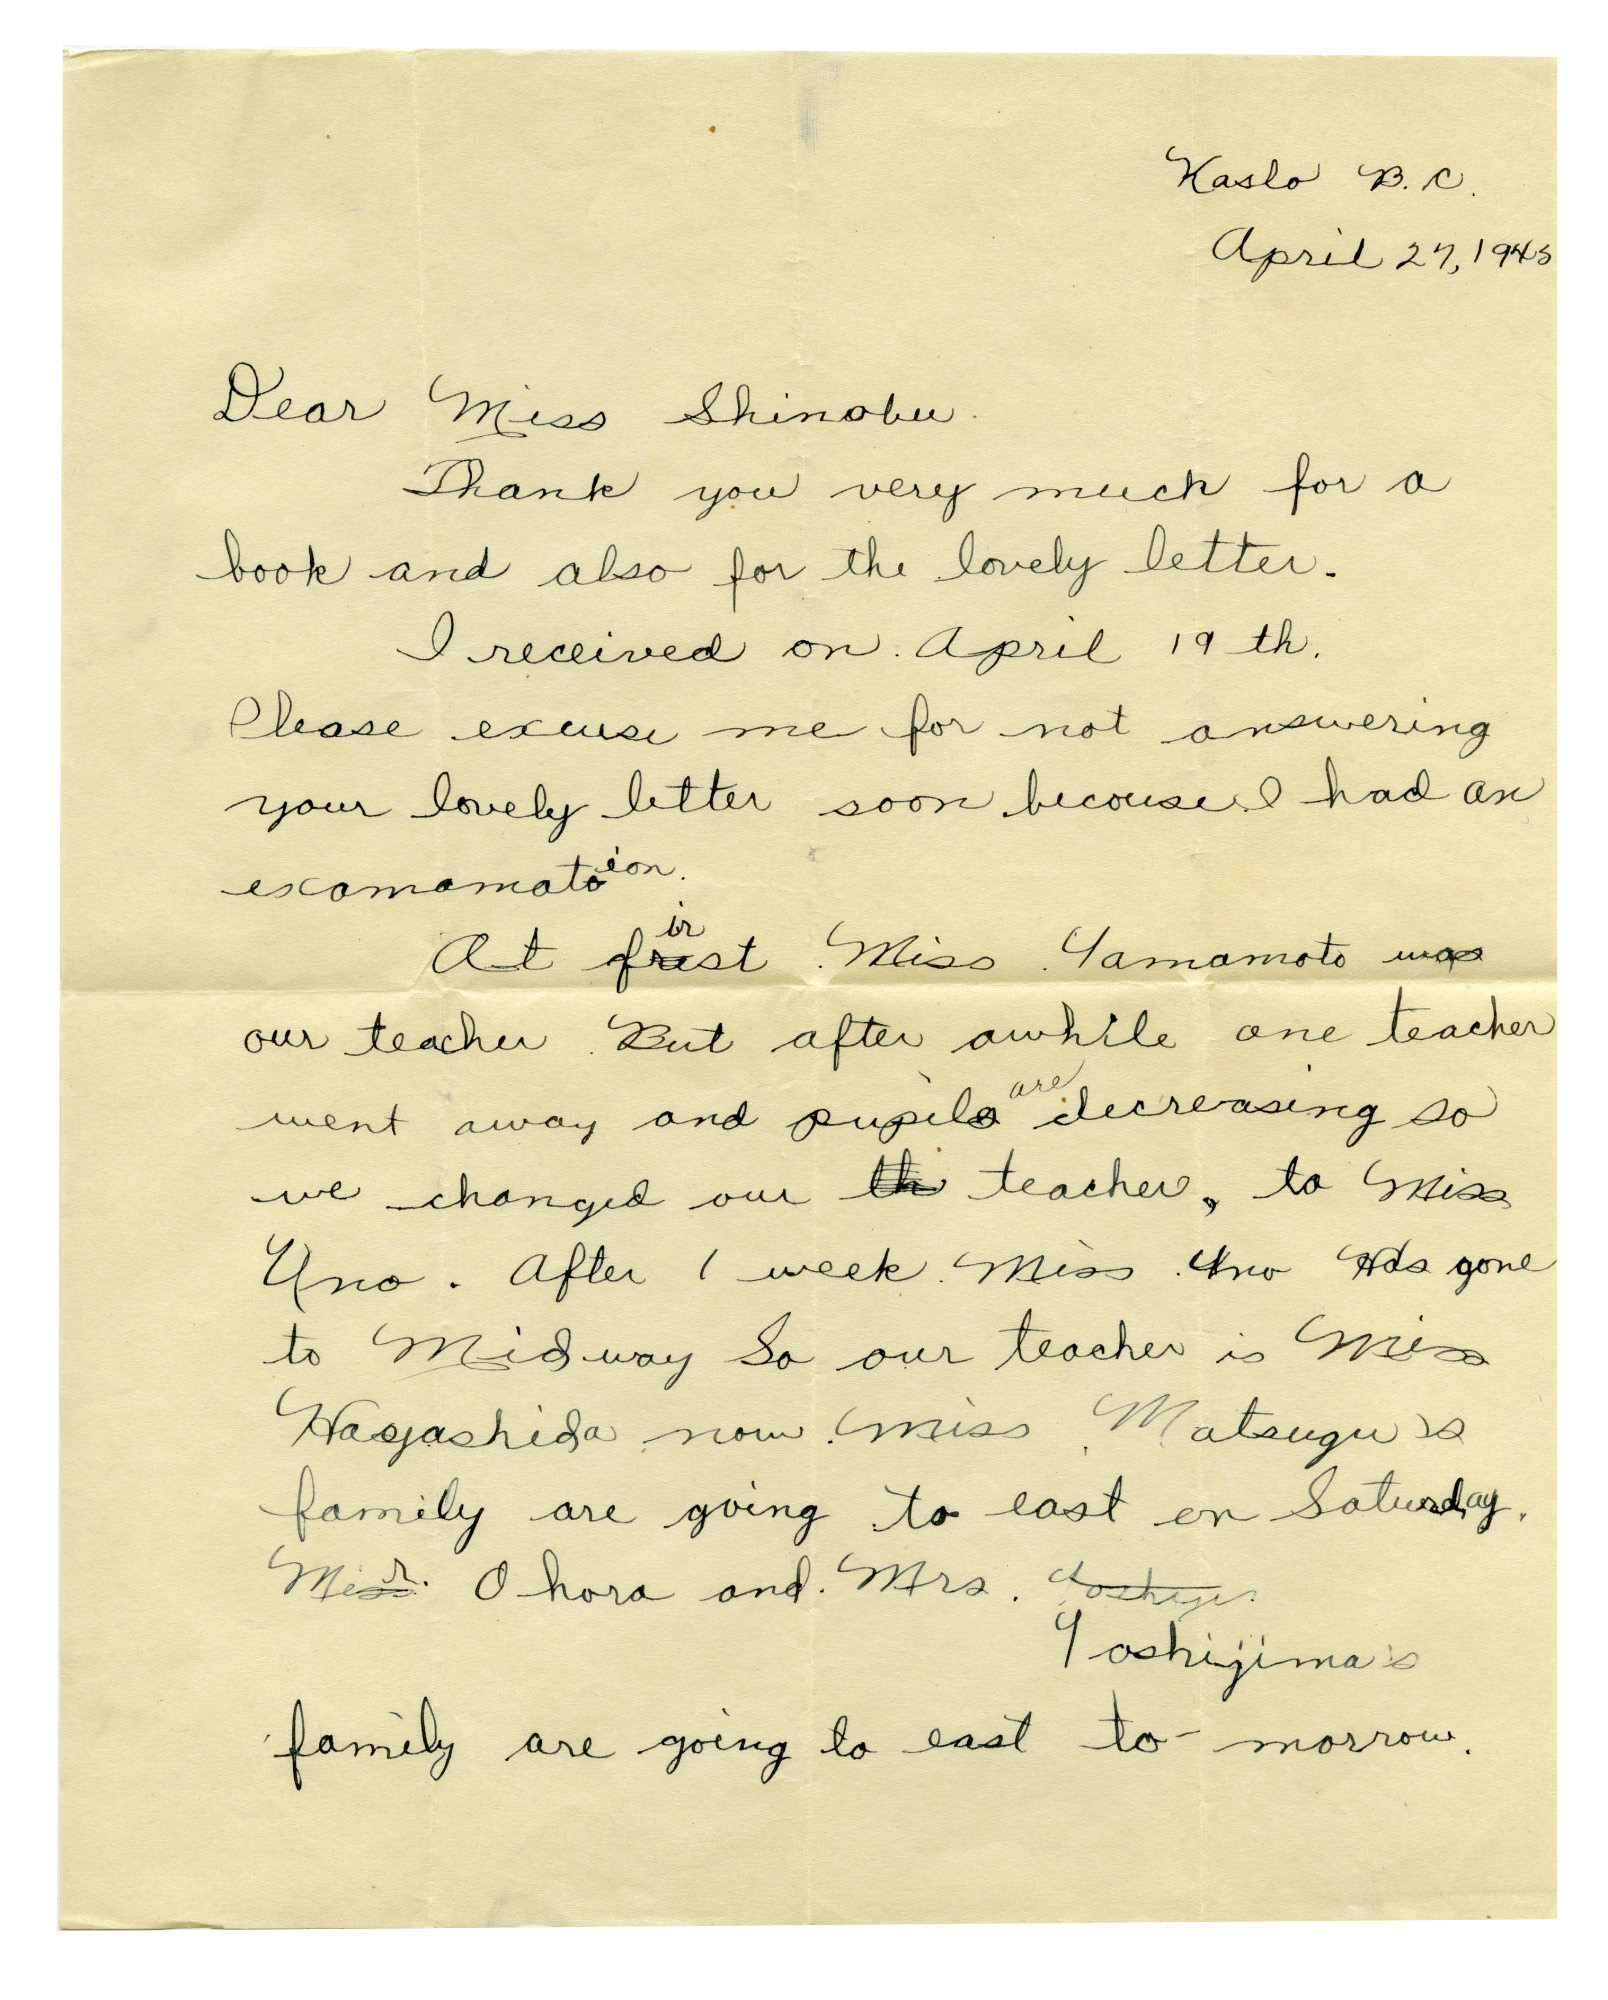 Kaslo B.C.
April 27, 1945
Dear Miss Shinobu
Thank you very much for a
book and also for the lovely letter.
I received on April 19 th.
Please excuse me for not answering
your lovely letter soon becouse I had an
examamation.
At first Miss Yamamoto was
our teacher But after awhile one teacher
went away and pupils are decreasing so
we changed our teacher, to Miss
Uno. After 1 week Miss Uno Has gone
to Midway So our teacher is Miss
Hayashida now Miss Matsugu's
family are going to east on Saturday.
Mr. Ohora and Mrs.
Yoshijima's
family are going to east to-morrow.